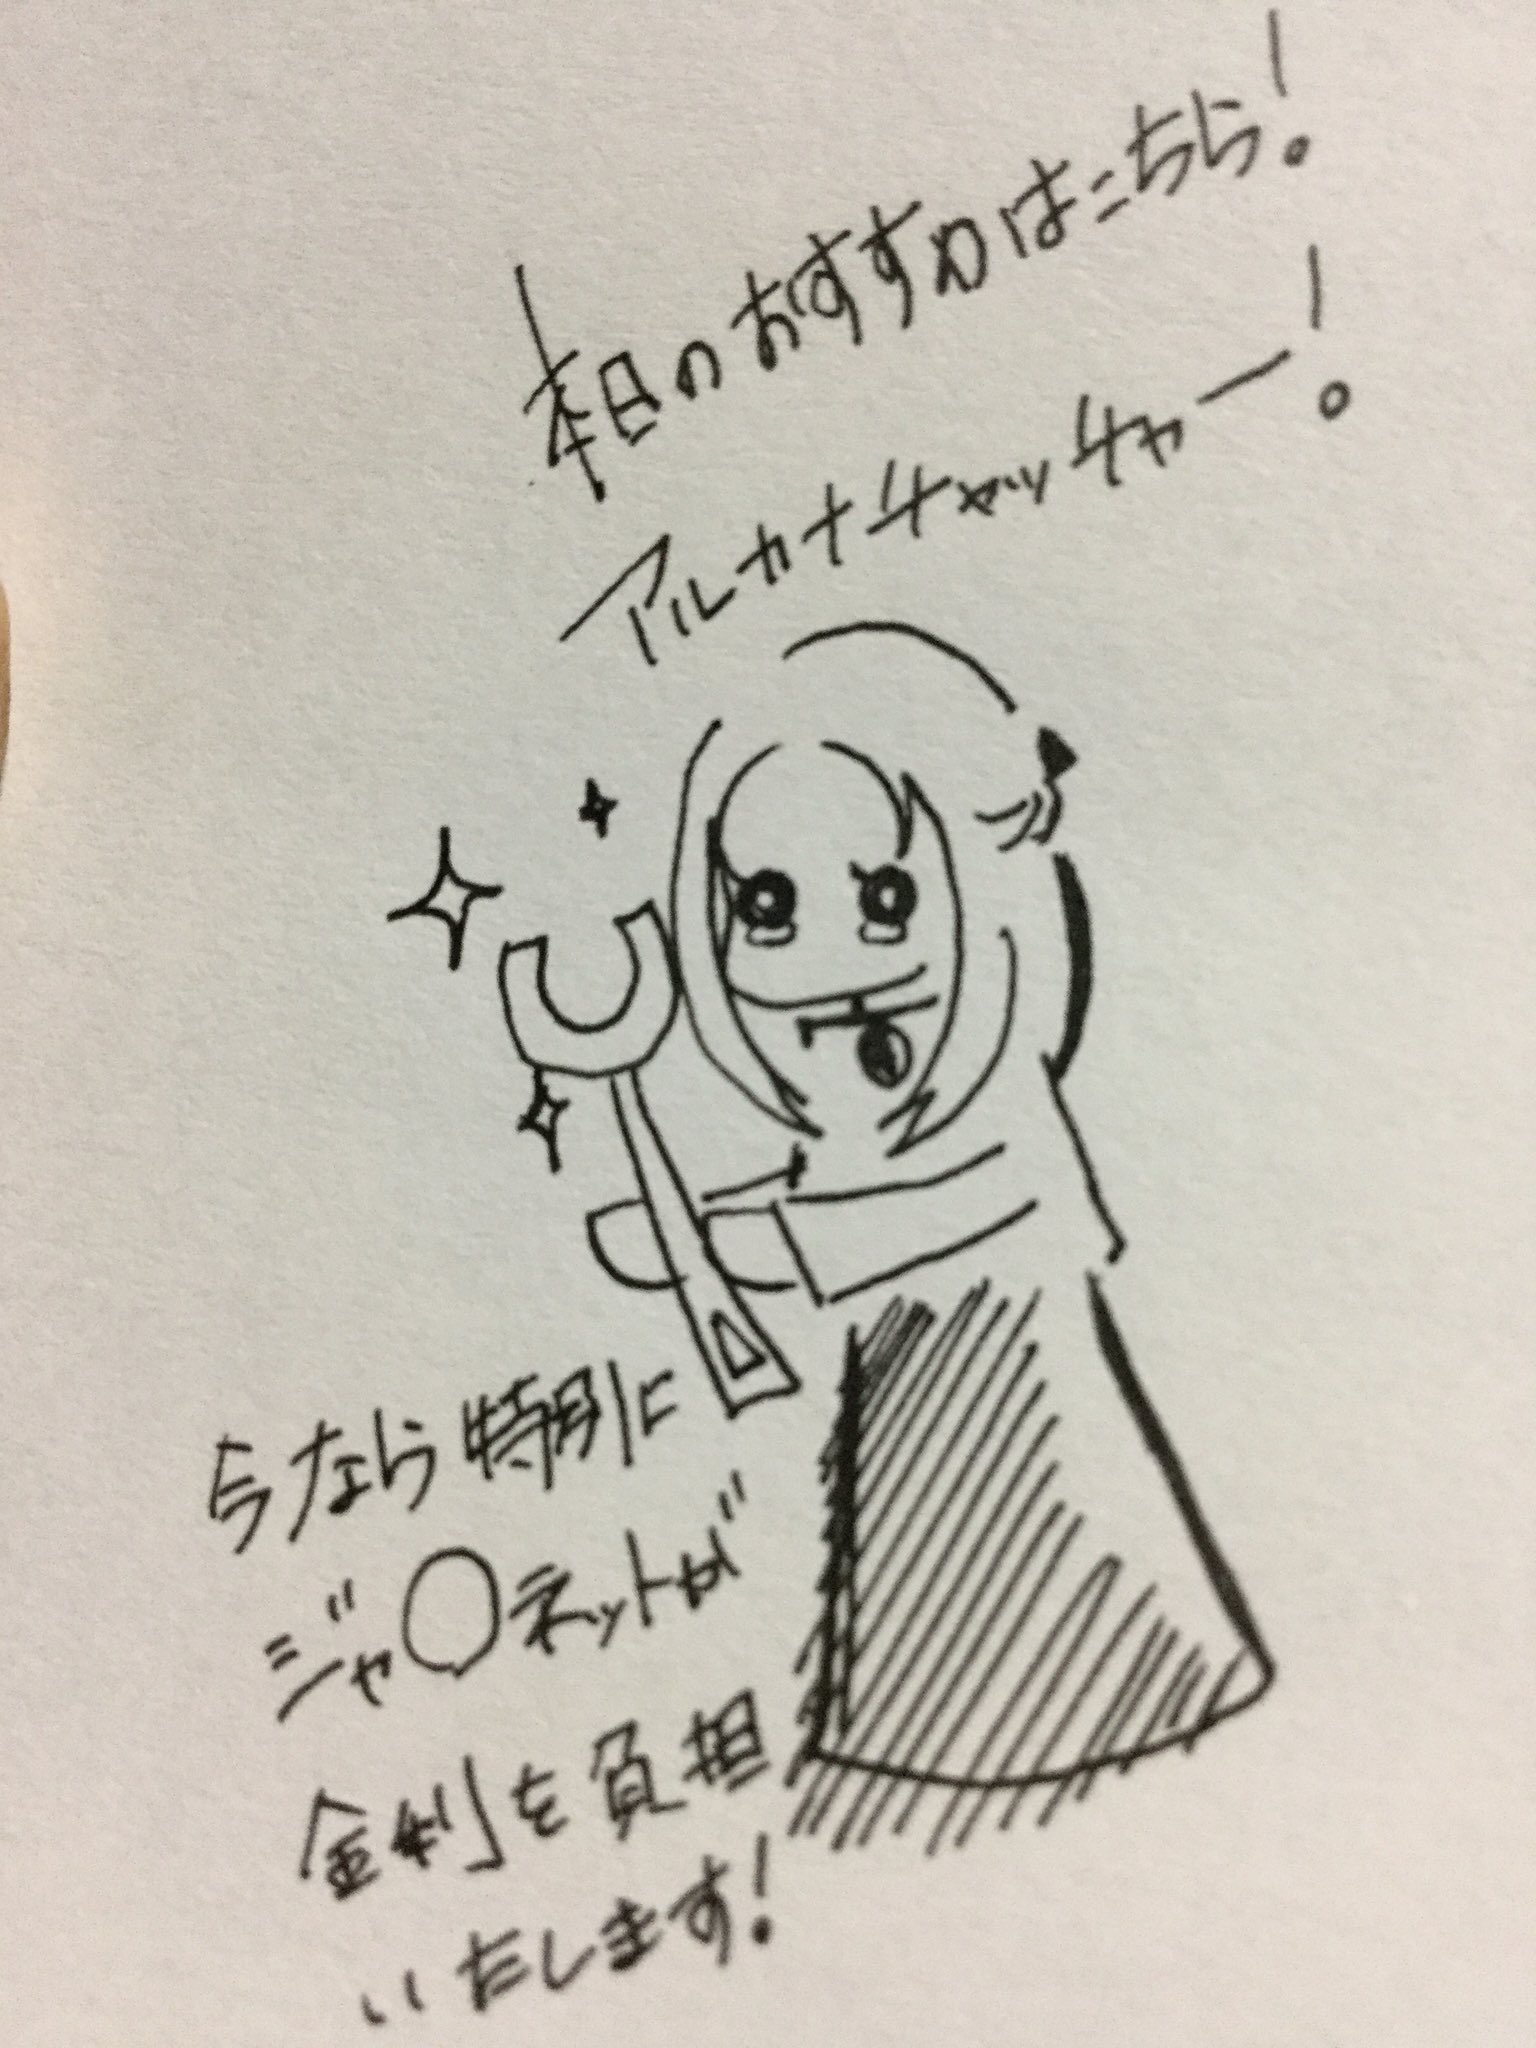 本日のおすすめはこちら!
アルカナキャッチャー!
今なら特別に
ジャ○ネットが
金利を負担
いたします!